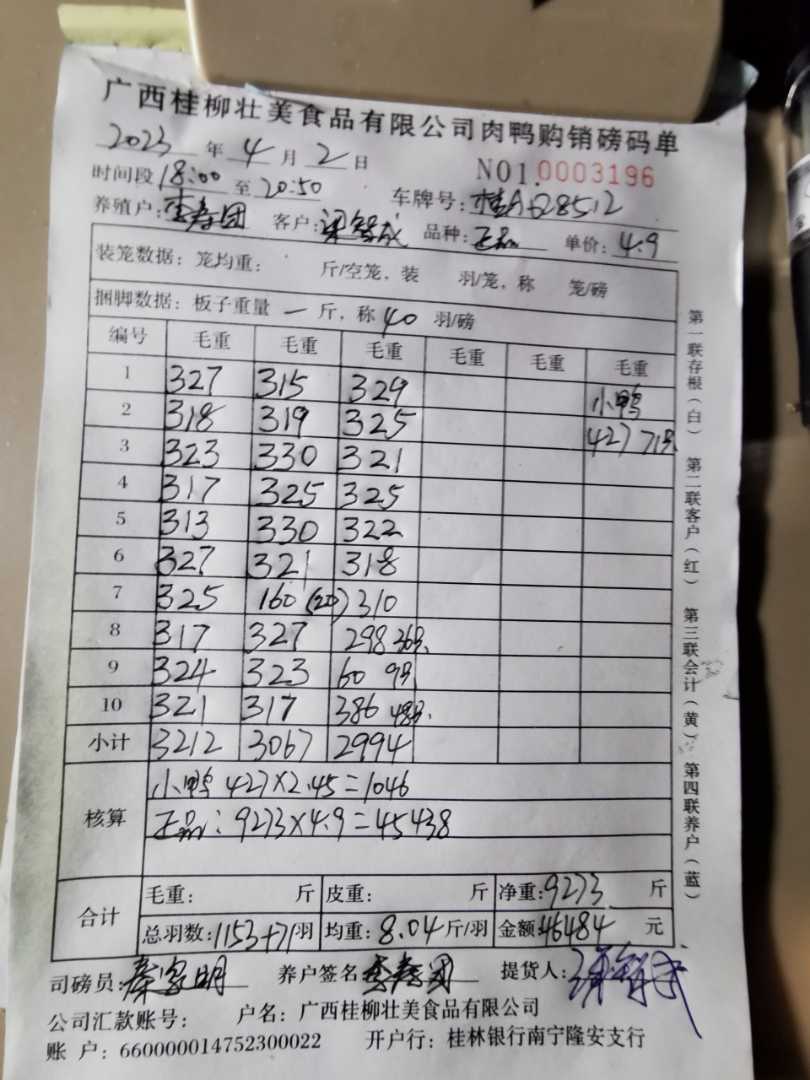 广西桂柳壮美食品有限公司肉鸭购销磅码单
2023 年 4 月 2 日 NO1.0003196
时间段 18:00 至 20:50 车牌号: 桂A·B28512
养殖户: 李寿团 客户: 梁智成 品种: 正品 单价: 4.9
装笼数据: 笼均重: 斤/空笼, 装 羽/笼, 称 笼/磅
捆脚数据: 板子重量 一 斤, 称 40 羽/磅
编号 毛重 毛重 毛重 毛重 毛重 毛重
1 327 315 329 小鸭
2 318 319 325 427 71只
3 323 330 321
4 317 325 325
5 313 330 322
6 327 321 318
7 325 160 (20) 310
8 317 327 298 36只
9 324 323 60 9只
10 321 317 386 48只
小计 3212 3067 2994
核算
小鸭 427×2.45=1046
正品: 9273×4.9=45438
合计
毛重: 斤 皮重: 斤 净重: 9273 斤
总羽数: 1153+71羽 均重: 8.04斤/羽 金额: 46484 元
司磅员: 秦家明 养户签名 李寿团 提货人: 梁智成
公司汇款账号: 户名: 广西桂柳壮美食品有限公司
账 户: 660000014752300022 开户行: 桂林银行南宁隆安支行
第一联存根(白) 第二联客户(红) 第三联会计(黄) 第四联养户(蓝)